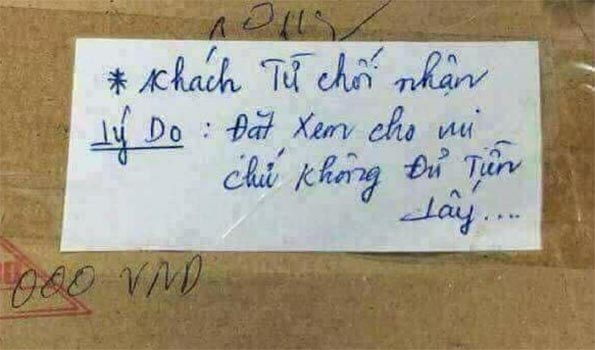 * Khách Từ chối nhận
Lý Do : Đặt Xem cho vui
chứ không Đủ Tiền
Lấy....
000 VND